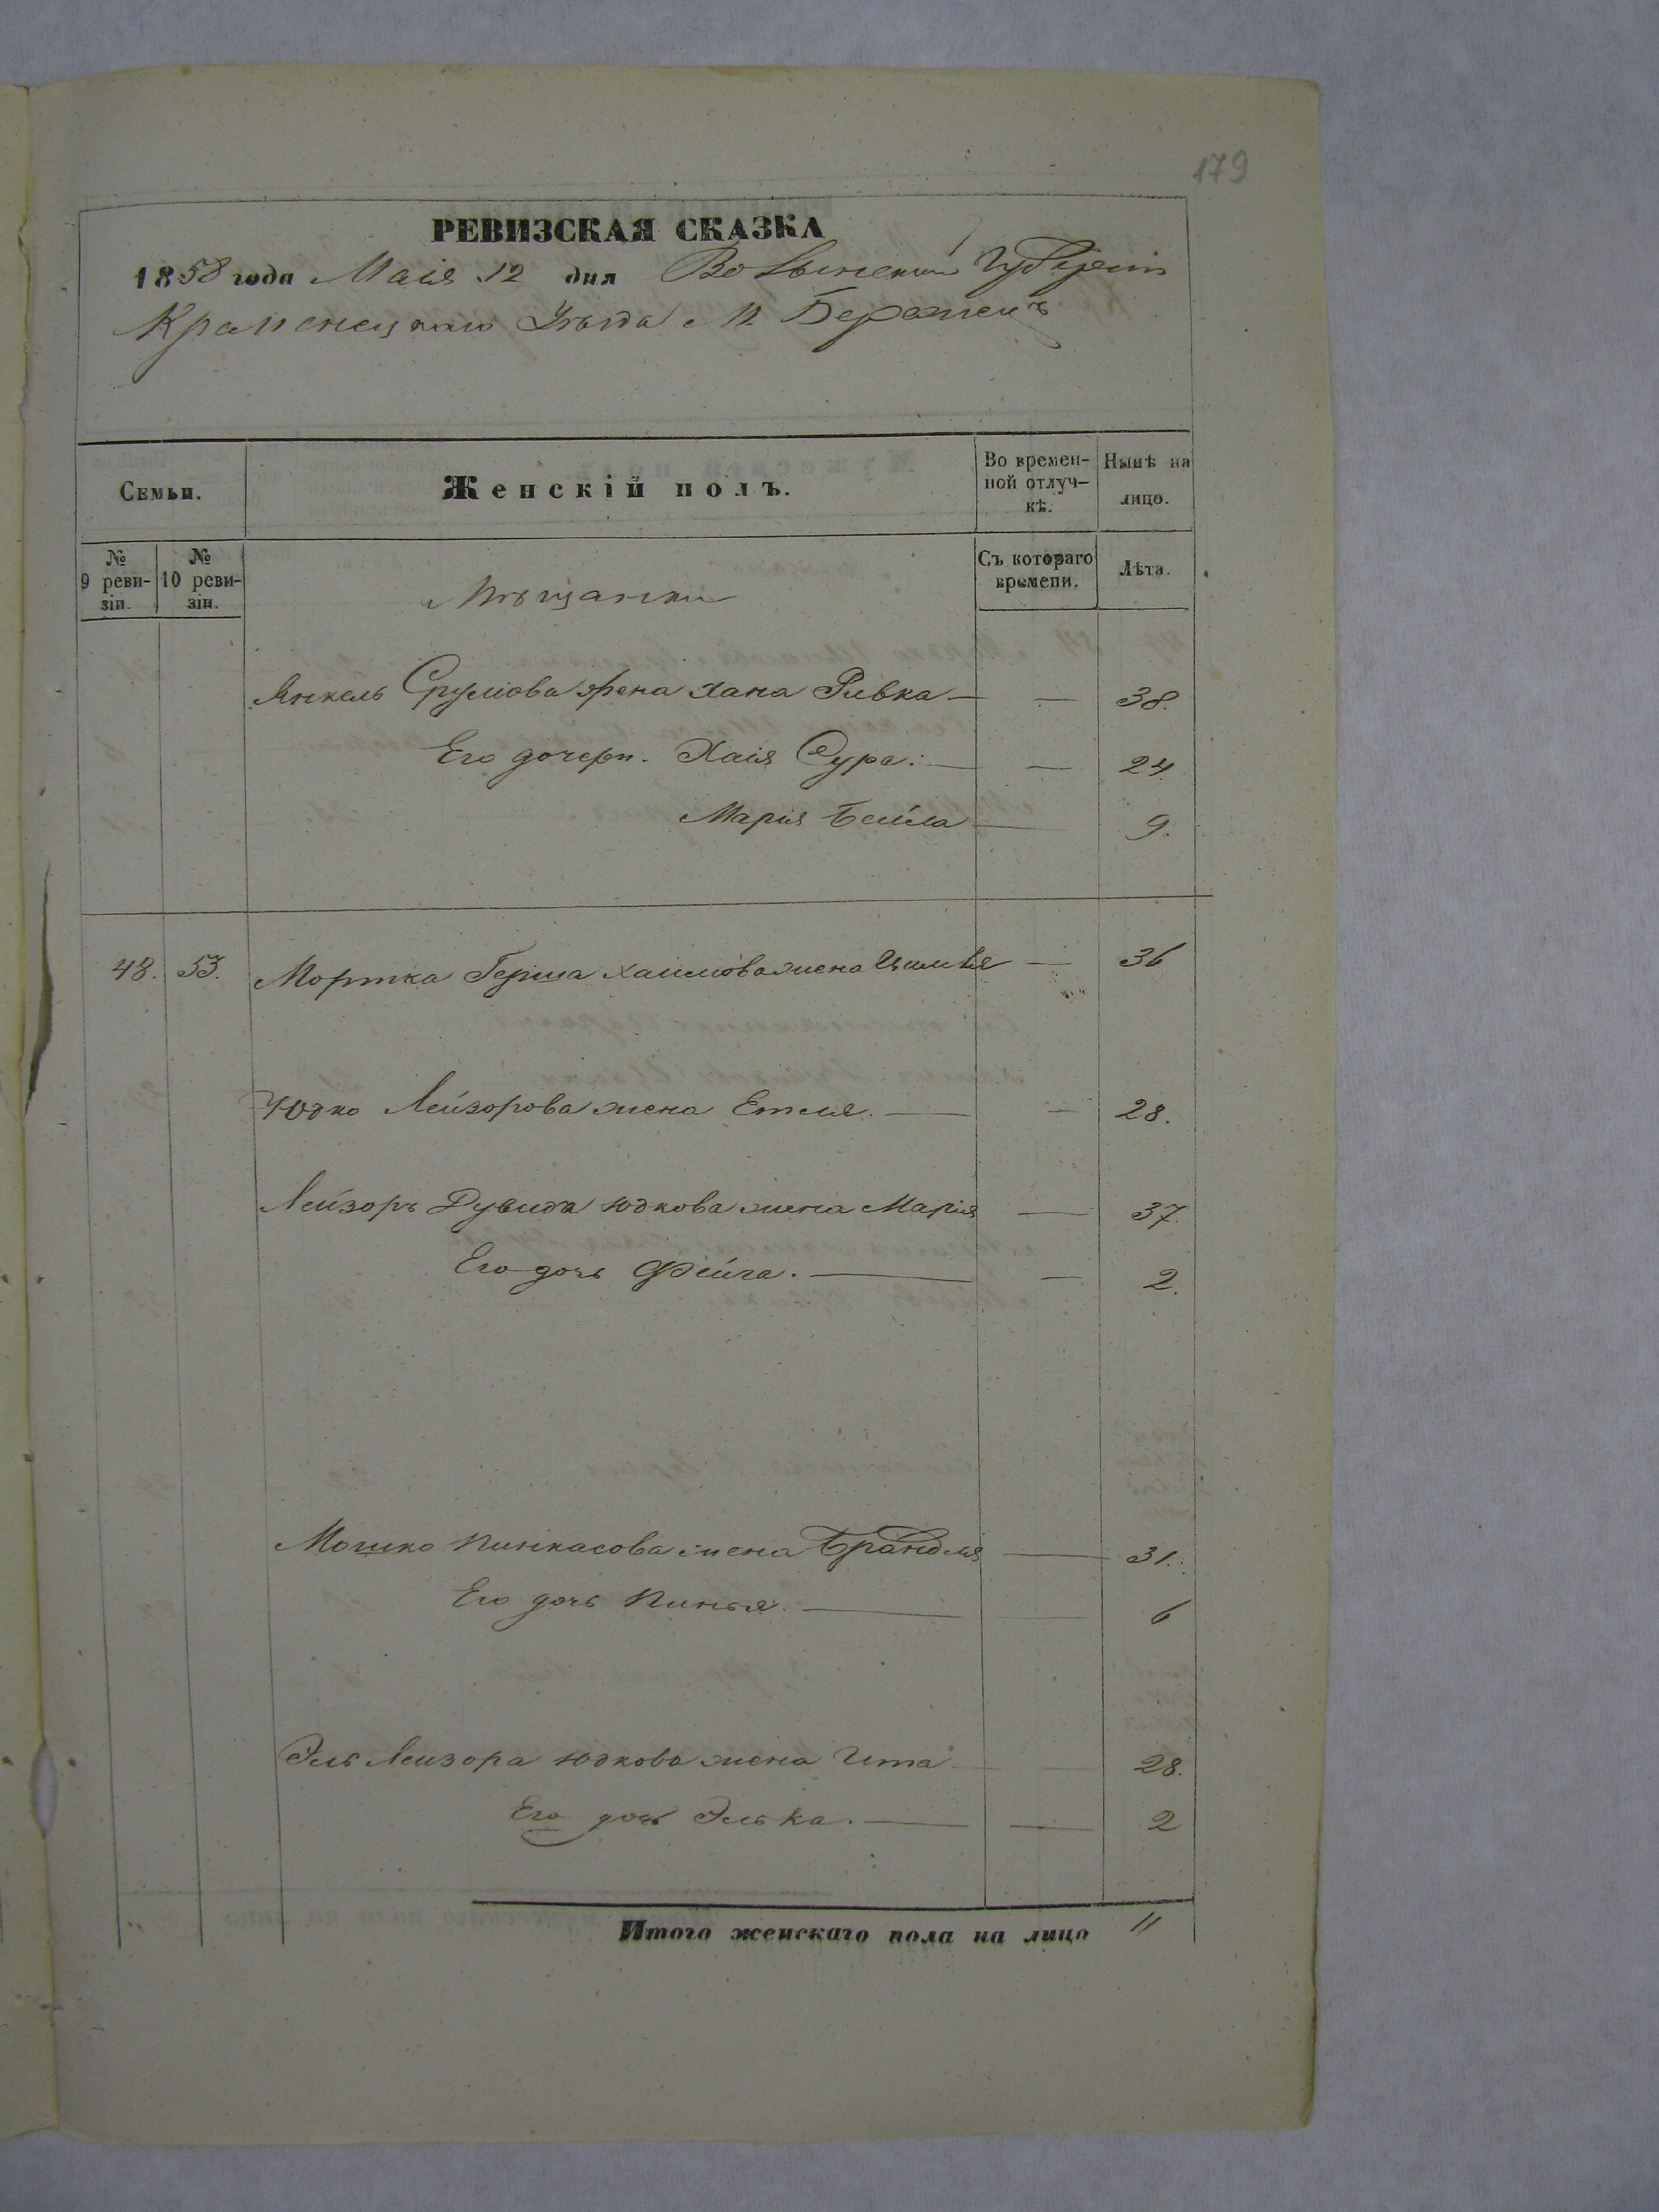 179
РЕВИЗСКАЯ СКАЗКА
1858 года Маія 12 дня Волынскои Губерніи
Кременецкаго Уѣзда М Бережецъ
Семьи.
Женскій полъ.
Во времен-
ной отлуч-
кѣ.
Нынѣ на
лицо.
№
9 реви-
зіи.
№
10 реви-
зіи.
Мѣщанки
Съ котораго
времени.
Лѣта.
Янкель Срулова жена Хана Ривка — — 38.
Его дочери. Хаія Сура. — — 24.
Марія Бейла — 9.
48. 53. Мортка Герша Хаимова жена — 36
Юдко Лейзорова жена Етля. — — 28.
Лейзоръ Дувида Юдкова жена Марія — 37.
Его дочь Фейга. — — 2.
Мошко Пинкасова жена Брандля — 31.
Его дочь Пинья. — — 6
Эль Лейзора Юдкова жена Ита — — 28.
Его дочь Элька. — — 2
Итого женскаго пола на лицо 11